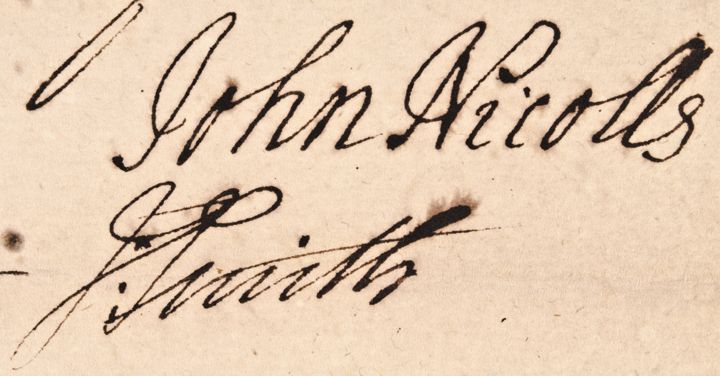 John Nicolls
J. Smith